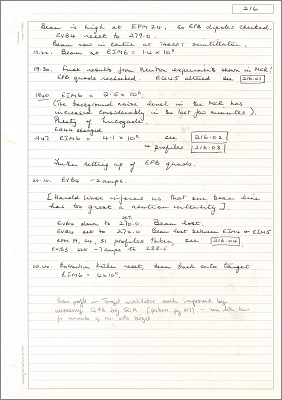 216
Beam is high at EPM 24, so EPB dipoles checked.
EVB4 reset to 279.0.
Beam now in centre at TARGET scintillator.
19.22. Beam at EIM6 = 1.4 × 10⁶
19.30. First results from Neutron experiments shown in MCR!
EPB quads rechecked. EQ45 altered see 216.01
1940 EIM6 = 2.5 × 10⁶.
(The background noise level in the MCR has
increased considerably in the last few minutes).
Plenty of
EQ44 changed
1947 EIM6 = 4.1 × 10⁶ see 216.02
+ profiles 216.03
Further setting up of EPB quads.
20.10. EVB4 -2amps.
[Harold Wroe informs us that one beam line
has too great a neutron intensity].
SET.
EVB4 down to 270.0. Beam lost.
EVB4 set to 272.0 Beam lost between EIM4 & EIM5
EPM 19, 24, 31 profiles taken, see 216.04
EVB3 at -7 amps to 288.5
20.40. reset, beam back onto target
EIM6 = 4×10⁶.
Beam profile on Target scintillator much improved by
increasing Q46 by 50A (picture pg 217)
for of run onto target